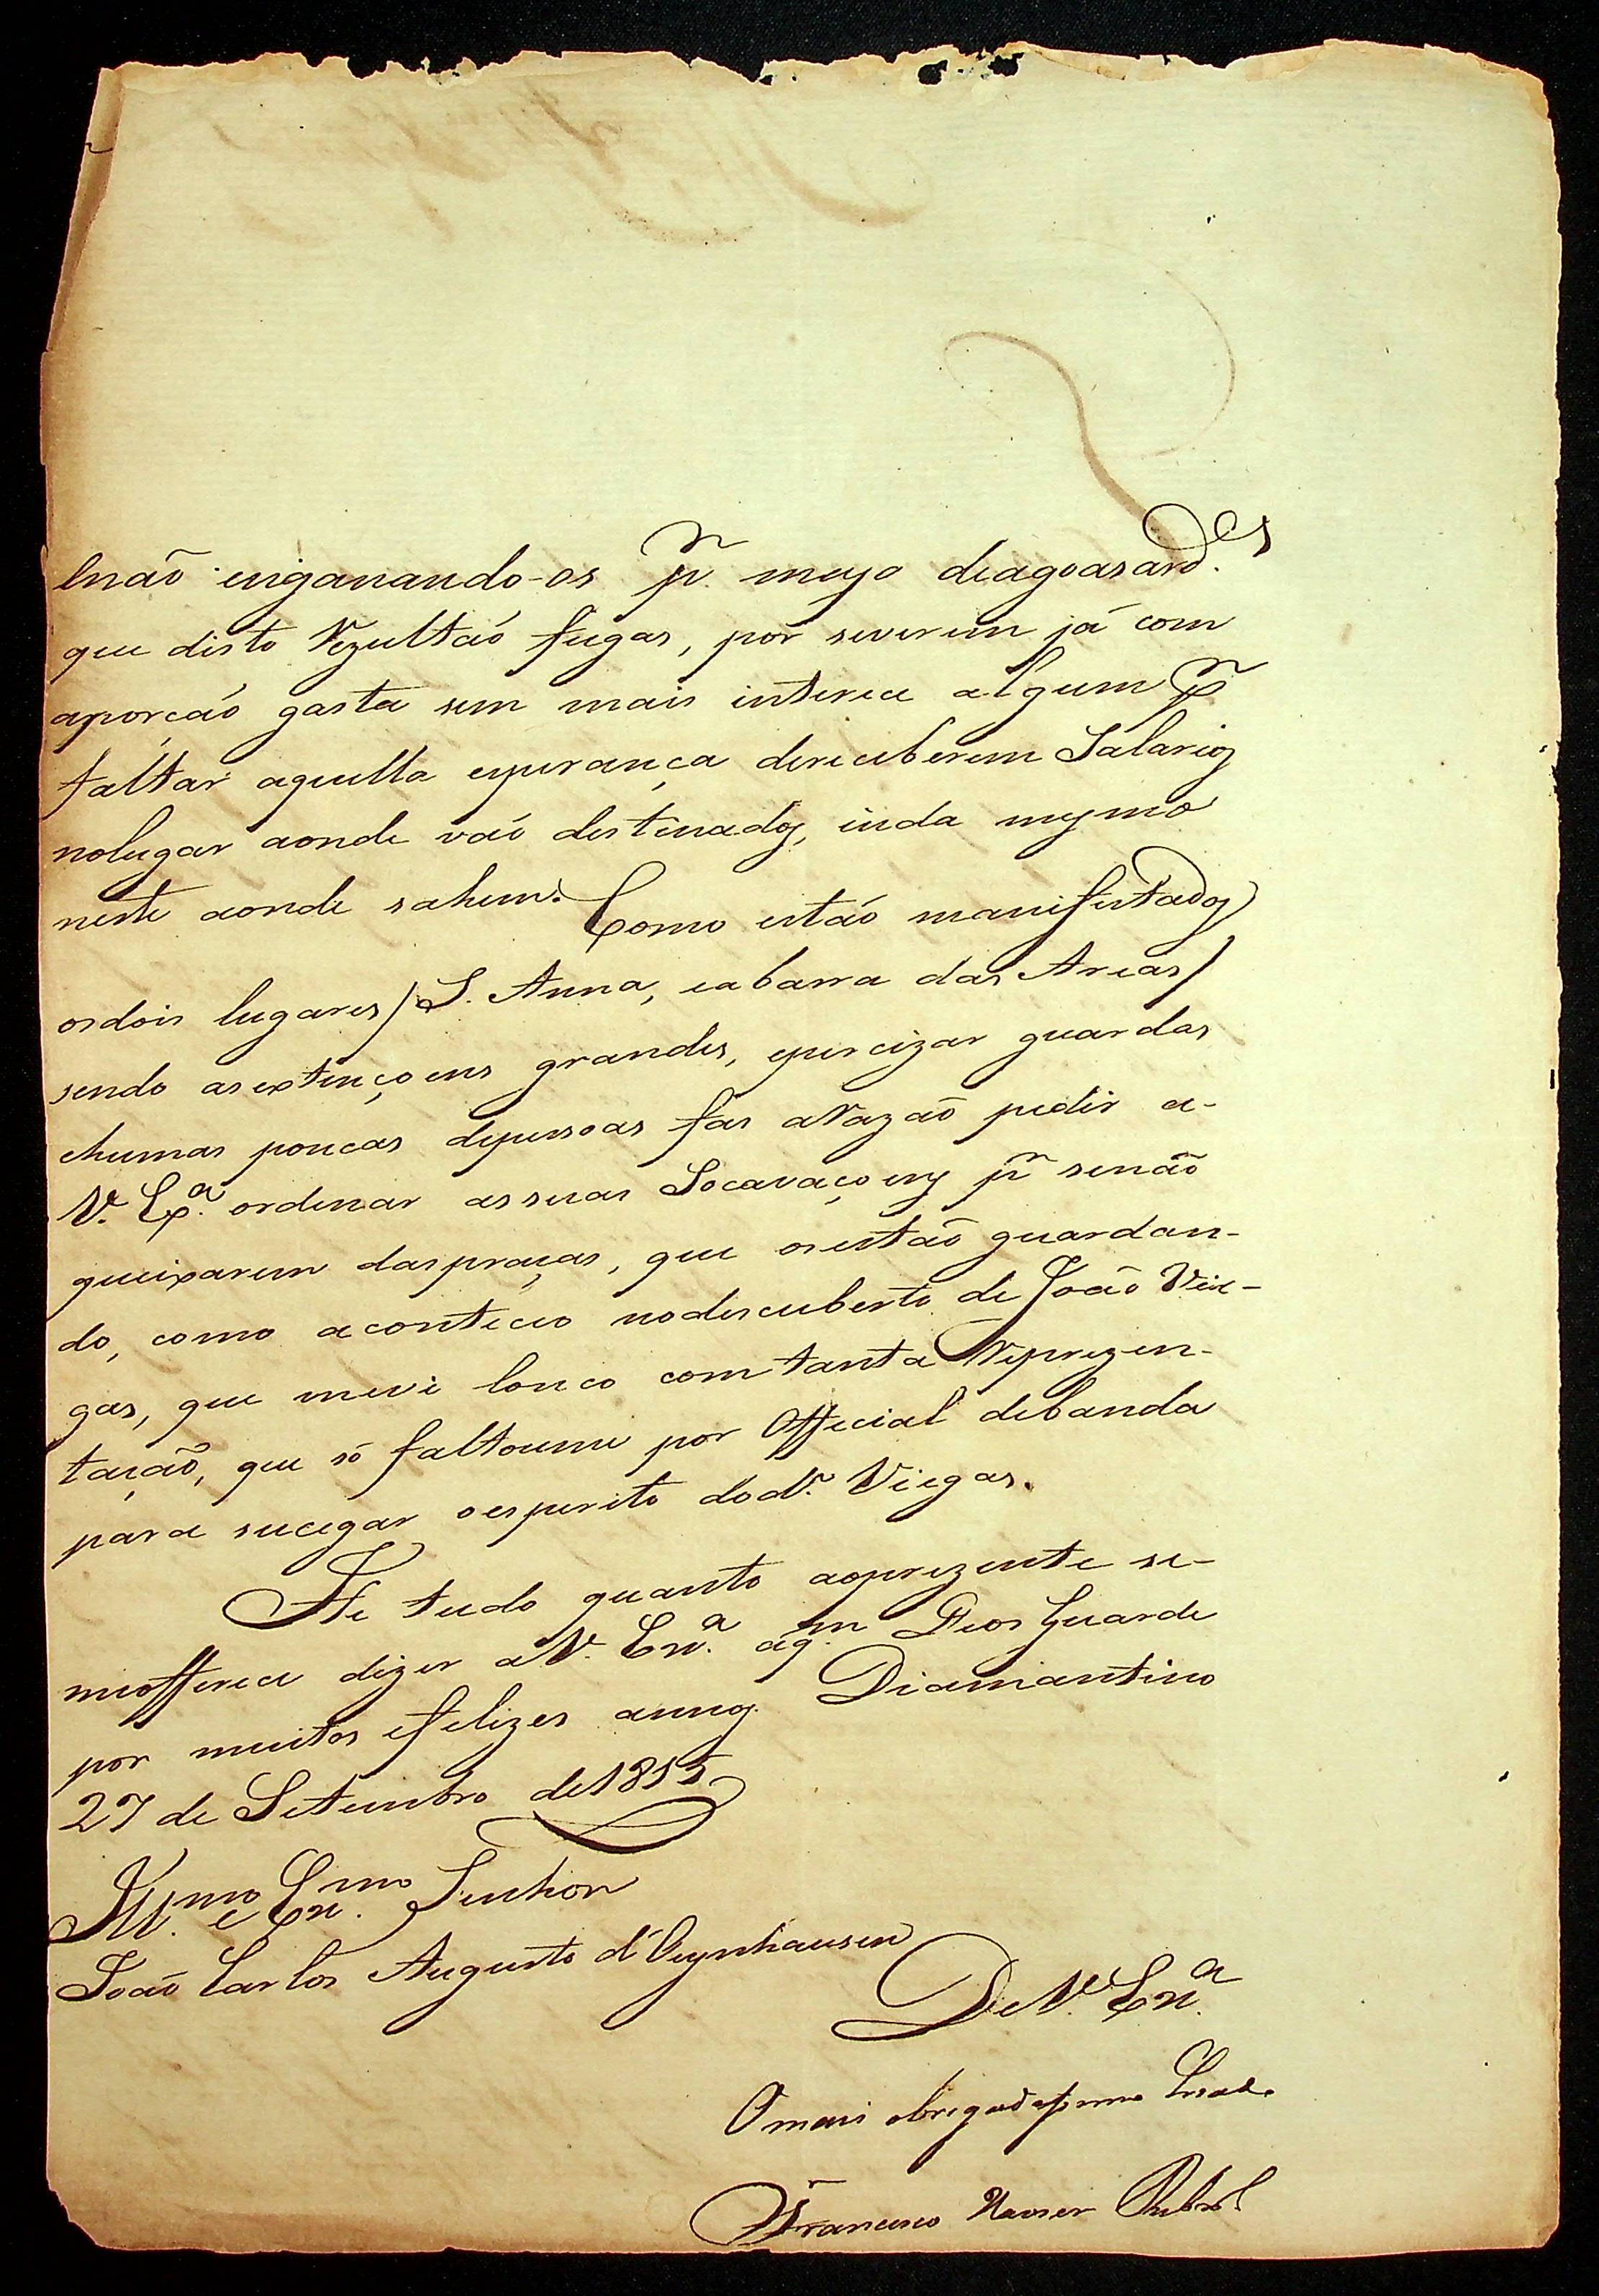 enão enganando-os pr. meyo deagoasard.es
que disto Rezultaó fugas, por severem já com
aporcaó gasta sem mais interece algum pr
faltar aquella esperança dereceberem Salarios
nolugar aonde vaó destinados, inda mesmo
neste aonde sahem. Como estaó manifestados
osdois lugares / S. Anna, eabarra das Areas /
sendo asextençoens grandes, eprecizar guardas
ehumas poucas depessoas fas aRazaó pedir a-
V. Ex.a ordenar assuas Socavaçoens pr senaõ
queixarem daspraças, que osestaõ guardan-
do, como aconteceo nodescuberto de Joaõ Vie-
gas, que mevi louco comtanta Reprezen-
taçaõ, que só faltoume por Official debanda
para sucegar oesperito dod.o Viegas.
He tudo quanto aoprezente se-
meofferece dizer aV. Ex.a aq.m Deos Guarde
por muitos efelizes annos. Diamantino
27 de Setembro de1815
Ill.mo e Ex.mo Senhor
Joaó Carlos Augusto d'Oeynhausen
DeV. Ex.a
Omais obrigado Criado
Francisco Xavier